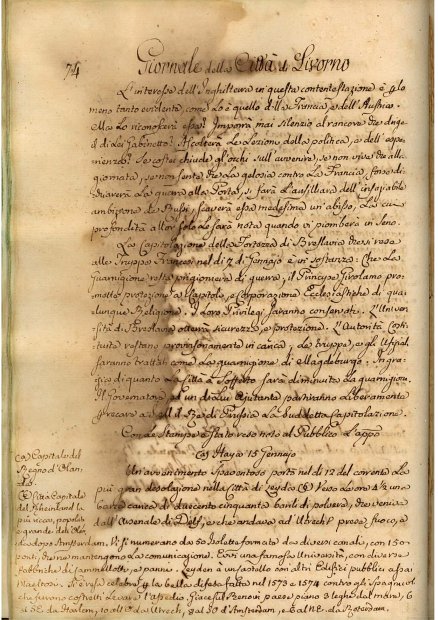 74
Giornale della Città di Livorno
L'interesse dell'Inghilterra in questa contestazione è p lo
meno tanto evidente, come lo è quello della Francia, e dell'Austria.
Ma lo riconoscerà essa? Imporrà mai silenzio al rancore che dirige
il di Lei Gabinetto? Ascolterà le Lezioni della politica, e dell'espe
rienza? Se costei chiude gl'occhi sull'avvenire, se non vive che alla
giornata, se non sente che la gelosia contro la Francia, forse di
chiarerà la guerra alla Porta, si farà l'ausiliare dell'insaziabile
ambizione de Russi, scaverà essa medesima un'abisso, la cui
profondità allor solo le sarà nota quando vi piomberà in seno.
La Capitolazione della Fortezza di Breslavia resasi
alle Truppe Francesi nel dì 7 di Gennajo è in sostanza: Che la
Guarnigione resta prigioniera di guerra, il Principe Girolamo pro
mette protezione a Capitolo, e Corporazione Ecclesiastiche di qua
lunque Religione. I loro Privilegj saranno conservati. L'Univer
sità di Breslavia otterrà sicurezza, e protezione. L'Autorità Costi
tuite restano provvisoriamente in carica, le truppe, e gli Uffizial
saranno trattati come la guarnigione di Magdeburgo. In gra
zia di quanto la Città à sofferto sarà diminuita la guarnigione.
Il Governatore ad un di lui Ajutante partiranno liberamente
p recare a S. M. il Re di Prussia la suddetta Capitolazione.
Con le Stampe è stato reso noto al Pubblico l'appo
(a) Haya 15 Gennajo
(a) Capitale del
Regno d'Olan
da.
Un avvenimento spaventoso portò nel dì 12 del corrente la
più gran desolazione nella Città di Leyda (b) Verso le ore 4½ una
barca carica di duecento cinquanta barili di polvere, che veniva
dall'Arsenale di Delft, e che andava ad Utrecht prese fuoco, e
(b) Città Capitale
del Rheinland la
più ricca, popolata
e grande dell'Olan
da dopo Amsterdam. Vi si numerano da 50 Isolette formate da diversi canali, con 150
ponti, che ne mantengono la comunicazione. Evvi una famosa Università, con diverse
Fabbriche di Cammellotti, e panni. Leyden à un castello con altri Edifizj pubblici assai
Si è resa celebre p la bella difesa fatta nel 1573 e 1574 contro gli Spagnuol
che furono costretti levare l'assedio. Giace sul Reno in paese piano 5 leghe dal mare, 6
al S.E. da Harlem, 10 all'O. da Utrech, dal S.O. d'Amsterdam, e 6 al N.E. da Rotterdam.